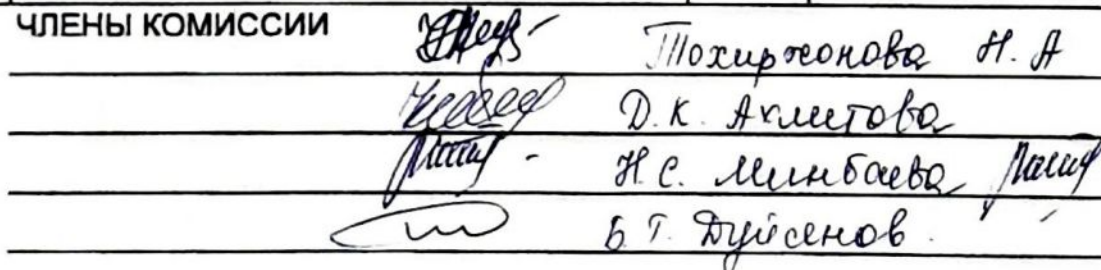 ЧЛЕНЫ КОМИССИИ Тохиржонова Н. А
Д. К. Акметова
Н. С. Минбаева
Б. Т. Дуйсенов.